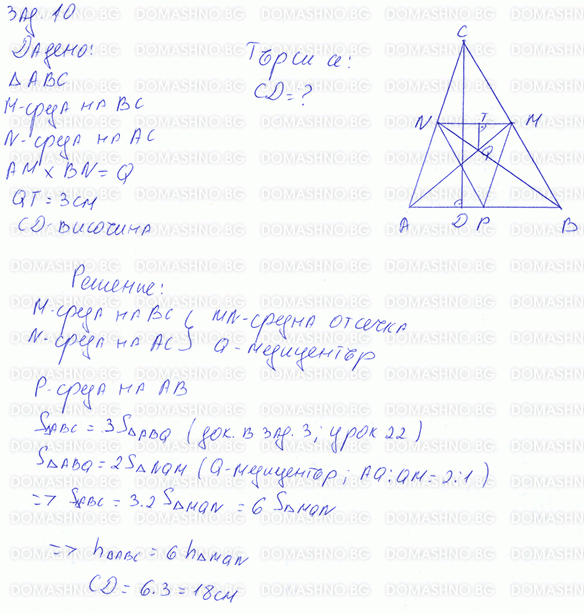 Зад. 10
Дадено:
Търси се:
CD = ?
△ABC
M-среда на BC
N-среда на AC
AM × BN = Q
QT = 3 см
CD-височина
C
N
T
M
Q
A
D
P
B
Решение:
M-среда на BC { MN-средна отсечка
N-среда на AC } Q-медицентър
P-среда на AB
S△ABC = 3S△ABQ (док. в зад. 3; урок 22)
S△ABQ = 2S△NQM (Q-медицентър; AQ:QM = 2:1)
=> S△ABC = 3.2 S△MQN = 6 S△MQN
=> h△ABC = 6 h△MQN
CD = 6.3 = 18 см
DOMASHNO.BG